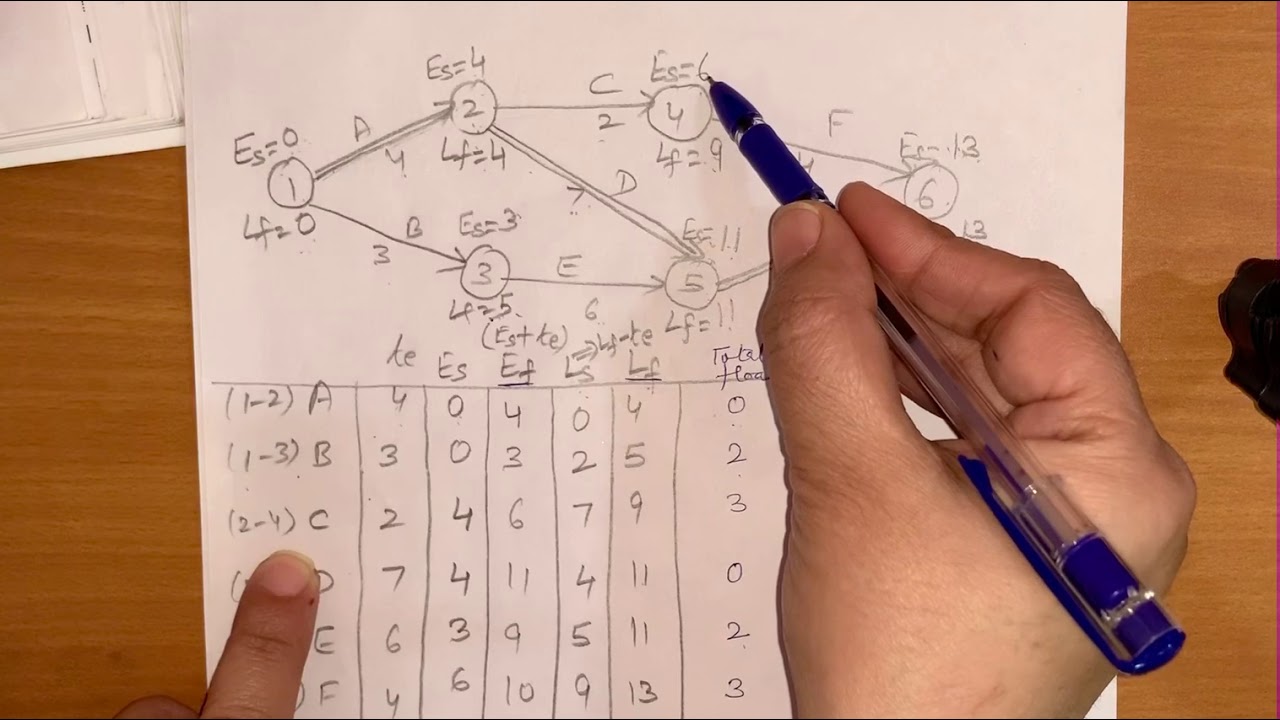 Es=4
C
Es=6
A
2
4
F
Es=0
4
Lf=4
2
Lf=9
4
Es=13
1
D
6
Lf=0
B
Es=3
Es=11
13
3
3
E
5
Lf=5
6
Lf=11
(Es+te) ⇒Lf-te
te Es Ef Ls Lf Total
(1-2) A 4 0 4 0 4 0
(1-3) B 3 0 3 2 5 2
(2-4) C 2 4 6 7 9 3
D 7 4 11 4 11 0
E 6 3 9 5 11 2
) F 4 6 10 9 13 3